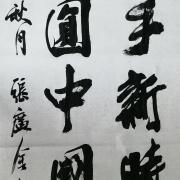 手新時
圓中國
秋月 張廣金